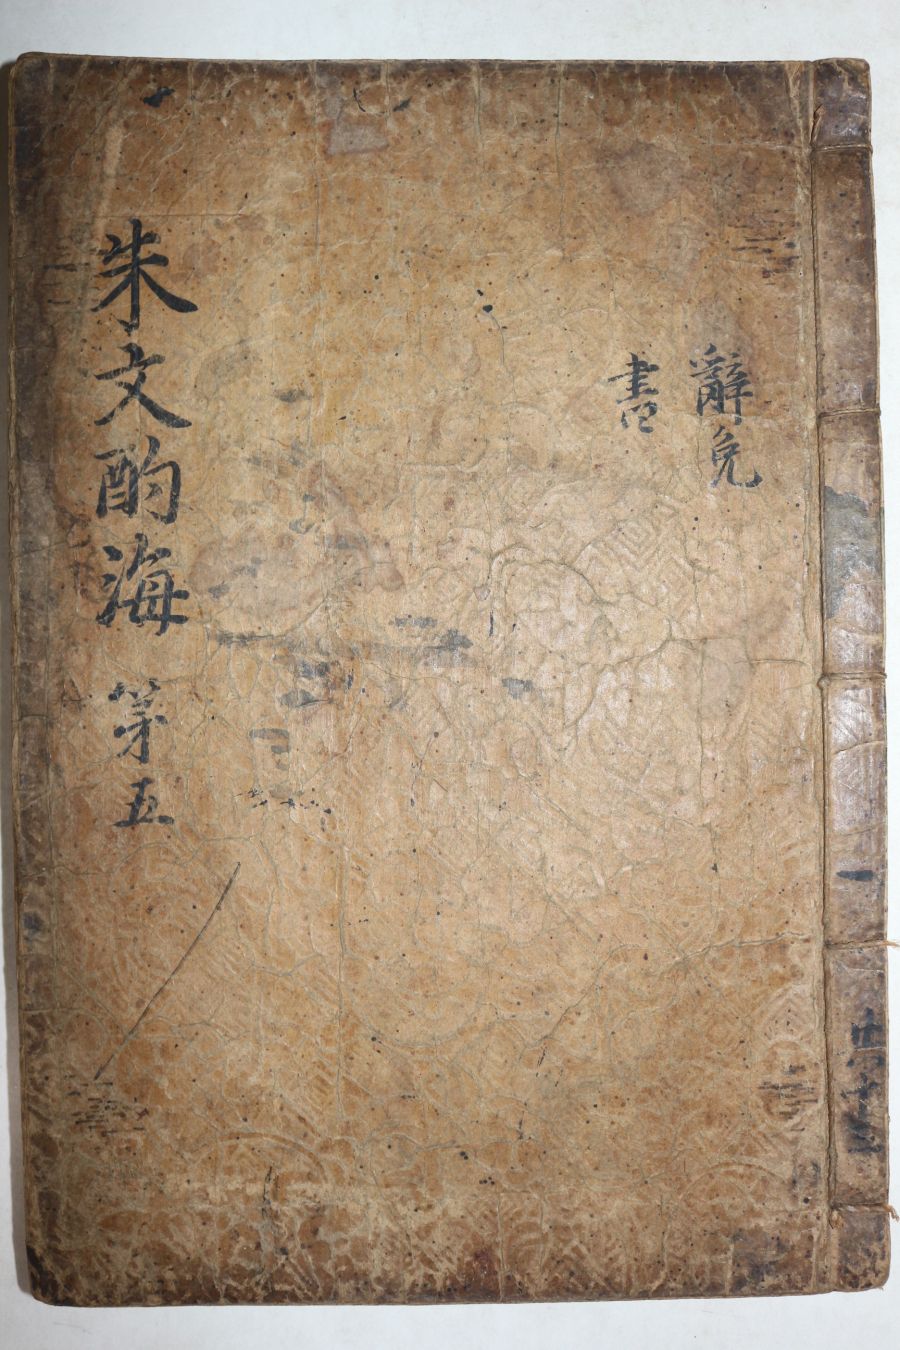 辭免
書
朱文酌海 第五